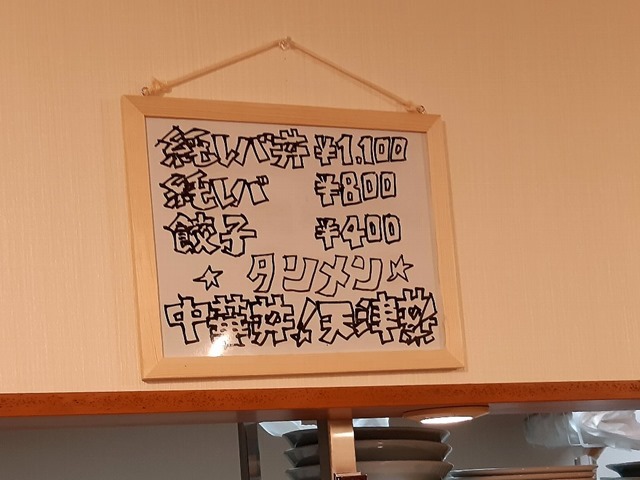 純レバ丼 ¥1.100
純レバ ¥800
餃子 ¥400
☆タンメン☆
中華丼!天津丼